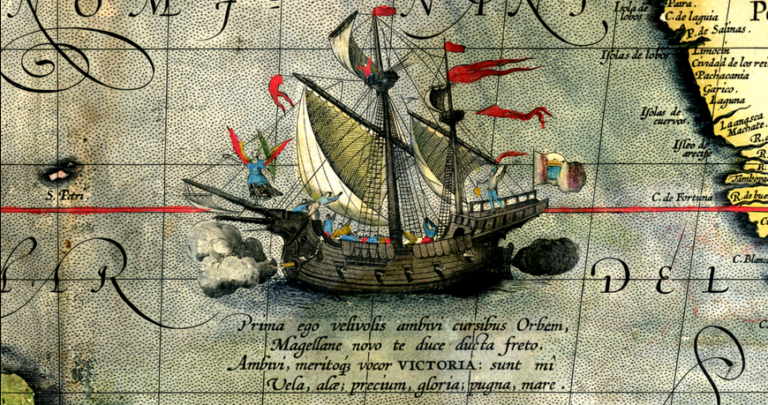 NOMI- NINI,
Isola de
lobos
Paira.
C. de laguia
P. de Salinas.
Isolas de lobos
Limocin
Cividad de los rei
Pachacania
Garico.
Laguna
Isolas de
cuervos
Laangsca
Machate.
Isleo de
arecife
S. Petri
C. de Fortuna
R. de bue
C. Blanc
AR DEL
Prima ego velivolis ambivi cursibus Orbem,
Magellane novo te duce ducta freto.
Ambivi, meritoqꝫ vocor VICTORIA: sunt mî
Vela, alæ; precium, gloria; pugna, mare.